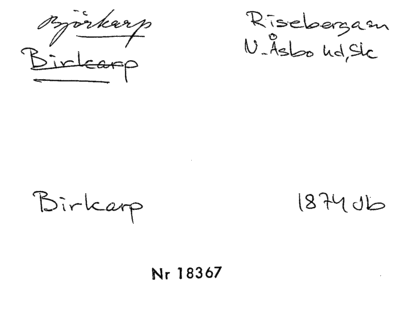 Björkarp
Riseberga sn
Birkarp
N. Åsbo hd, Sk
Birkarp
1874 Jb
Nr 18367